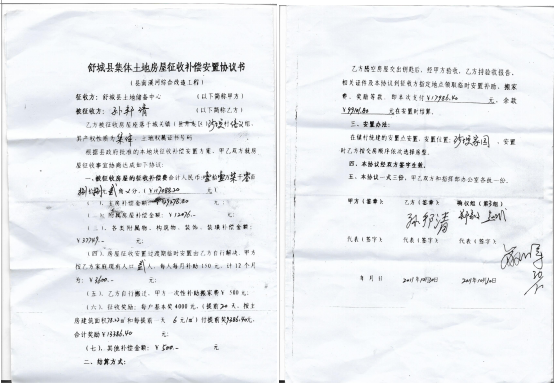 舒城县集体土地房屋征收补偿安置协议书
(县南溪河综合改造工程)
征收方:舒城县土地储备中心 (以下简称甲方)
被征收方:孙邦清 (以下简称乙方)
乙方被征收房屋座落于城关镇
其产权性质为集体,土地权属证书号码
根据县政府批准的本地块征收补偿安置方案,甲乙双方就房
屋征收事宜协商达成如下协议:
一、被征收房屋的征收补偿费合计人民币:
元)
(一)、主房补偿金额:
元;
(二)、附属房屋补偿金额:¥12096. 元;
(三)、各类附属物、构筑物、装饰、装璜补偿金额:
¥37749. 元;
(四)、房屋征收安置过渡期临时安置由乙方自行解决,甲方
按乙方家庭现有人口贰人,每人每月补助150元,计12个月
为:¥3600. 元;
(五)、乙方自行搬迁,甲方一次性补助搬家费¥500元;
(六)、征收奖励:每户基本奖4000元,(提前20天,按主
房建筑面积78.22㎡和每提前一天6元/㎡)付提前奖9386.40元,
合计奖励¥13386.40元
(七)、其他补偿金额:¥500. 元
二、结算方式:
乙方腾空房屋交出钥匙后,经甲方验收,乙方持验收报告、
相关证件及本协议到征收方指定地点领取临时安置补助、搬家
费、奖励等款,即本次支付¥17986.40元,余款
元在安置时结算。
三、安置办法:
在储村统建的安置点安置,安置位置:沙埂家园,安置
时乙方按交房顺序依次选择房型。
四、本协议经双方签字生效。
五、本协议一式三份,甲乙双方和指挥部办公室各执一份。
甲方(盖章) 乙方(盖章) 确议组(第3组)
孙邦清
代表(签字) 代表(签字) 代表(签字)
年 月 日 2011年10月30日 2011年10月30日